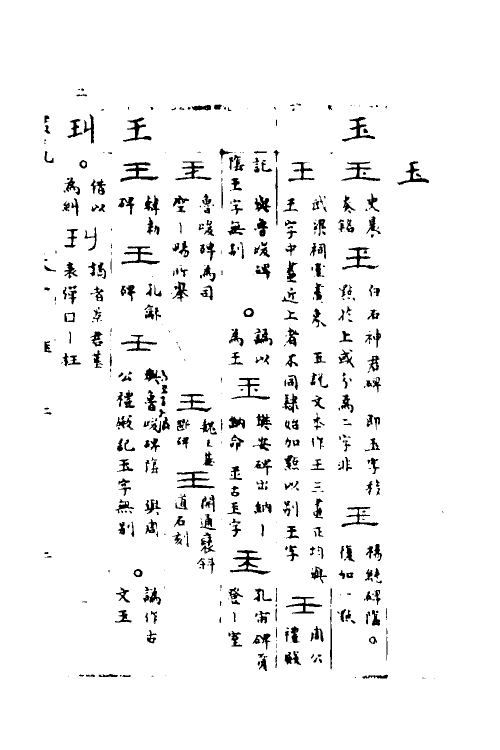 玉
玉 玉 史晨奏銘 玉 白石神君碑 即玉字移點於上或分為二字非 玉 楊統碑陰。復加一點
王 武梁祠堂畫象 玉說文本作王三畫正均與王字中畫近上者不同隸始加點以別王字 王 周公禮殿
記 與魯峻碑陰王字無別 。譌以為王 玉 樊安碑出納|納命 並古玉字 玉 孔宙碑 登|室
王 魯峻碑為司空|暢所舉 王 斷碑 王 開通褒斜道石刻
王 王 韓勑碑 王 孔龢碑 王 與魯峻碑陰 與周公禮殿記玉字無別 。譌作古文玉
玌 。借以為糾 玌 謁者景君墓表殫口|枉
二